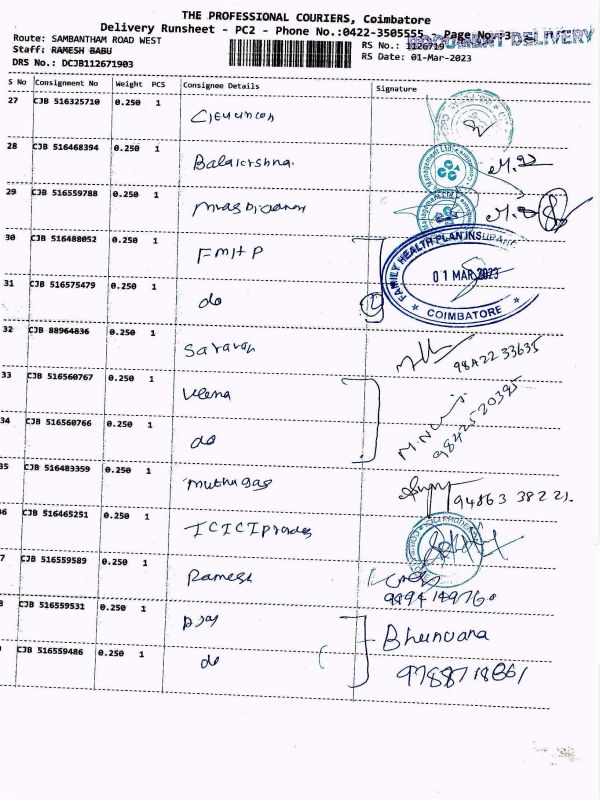 THE PROFESSIONAL COURIERS, Coimbatore
Delivery Runsheet - PC2 - Phone No.:0422-3505555 Page No.:3
DOCUMENT DELIVERY
Route: SAMBANTHAM ROAD WEST
RS No.: 1126719
Staff: RAMESH BABU
RS Date: 01-Mar-2023
DRS No.: DCJB112671903
S No Consignment No Weight PCS Consignee Details Signature
27 CJB 516325710 0.250 1
28 CJB 516468394 0.250 1 Balakrishna.
29 CJB 516559788 0.250 1
30 CJB 516488052 0.250 1 FMHP
FAMILY HEALTH PLAN INSURANCE
01 MAR 2023
COIMBATORE
31 CJB 516575479 0.250 1 do
32 CJB 88964836 0.250 1 Saravan
98422 33635
33 CJB 516560767 0.250 1 Veena
9842520395
34 CJB 516560766 0.250 1 do
35 CJB 516483359 0.250 1
94863 38221
36 CJB 516465251 0.250 1
7 CJB 516559589 0.250 1 Ramesh
9994149760
8 CJB 516559531 0.250 1
Bhunvana
CJB 516559486 0.250 1 do
9788718661